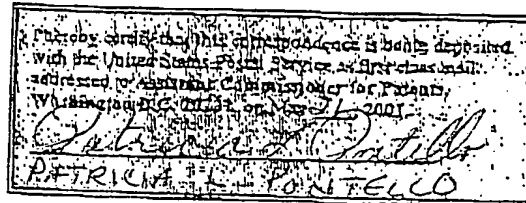 I hereby certify that this correspondence is being deposited
with the United States Postal Service as first class mail
addressed to Assistant Commissioner for Patents,
Washington D.C. on May 21, 2001
Patricia L. Pontello
PATRICIA L. PONTELLO